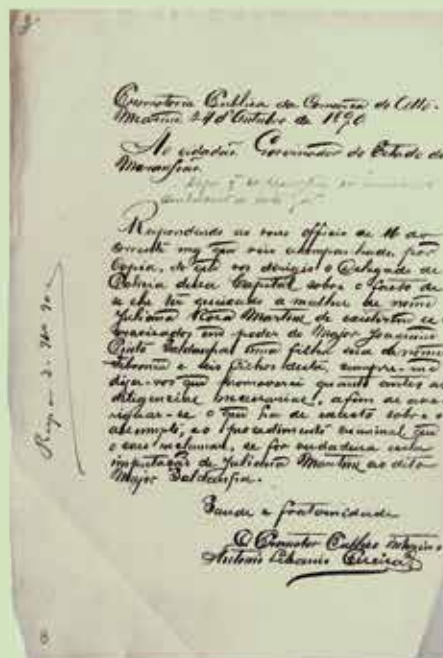 Promotoria Publica da Comarca do Alto-
Mearim 24 d'Outubro de 1890
Ao cidadão Governador do Estado do
Maranhão.
Respondendo ao vosso officio de 16 do
corrente mez que veio acompanhado por
copia, do que vos dirigio o Delegado de
Policia dessa Capital sobre o facto de
se lhe ter queixado a mulher de nome
Juliana Rosa Martins de existirem es-
cravisados em poder do Major Joaquim
Pinto Saldanha, uma filha sua de nome
e seis filhos desta, cumpre-me
dizer-vos que promoverei quanto antes as
diligencias necessarias, afim de ave-
riguar-se o que ha de exacto sobre o
assumpto, e o procedimento criminal que
o caso reclamar, se for verdadeira
imputação de Juliana Martins ao dito
Major Saldanha.
Saude e fraternidade
O Promotor Publico
Antonio Pereira